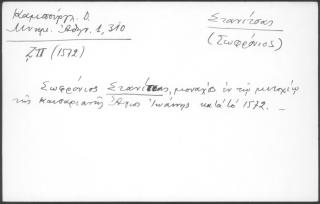 Καμπούργλ. Δ.
Μνημ. Ἀθην. 1, 310
ΖΠ (1572)
Στανίτσας
(Σωφρόνιος)
Σωφρόνιος Στανίτσας, μοναχὸς ἐν τῷ μετοχίῳ
τῆς Καισαριανῆς Ἅγιος Ἰωάννης κατὰ τὸ 1572. —